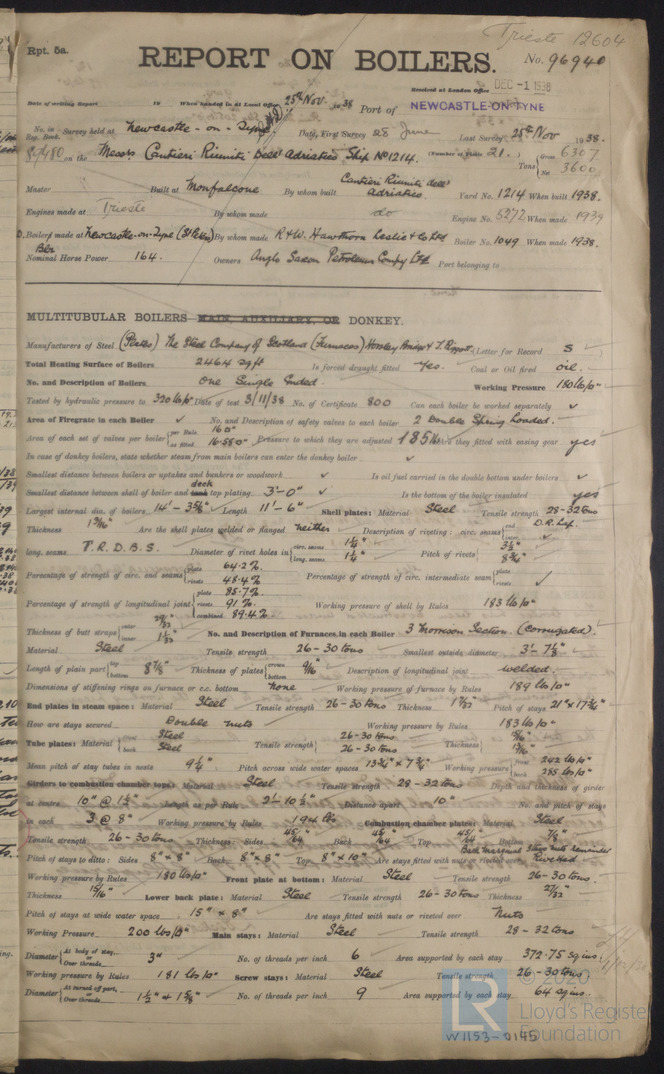 Trieste 12604
Rpt. 5a.
REPORT ON BOILERS.
No. 96940
Received at London Office DEC -1 1938
Date of writing Report 19 When handed in at Local Office 25th Nov 1938 Port of NEWCASTLE-ON-TYNE
No. in Survey held at Newcastle-on-Tyne Date, First Survey 28 June Last Survey 25th Nov 1938.
Reg. Book.
89480 on the Messrs Cantieri Riuniti Dell' Adriatico Ship No 1214. (Number of Visits 21.) Tons Gross 6307 Net 3600
Master Built at Monfalcone By whom built Cantieri Riuniti dell' Adriatico Yard No. 1214 When built 1938.
Engines made at Trieste By whom made do Engine No. 5272 When made 1939
Boilers made at Newcastle-on-Tyne (St Peters) By whom made R&W. Hawthorn Leslie & Co Ltd Boiler No. 1049 When made 1938.
Nominal Horse Power 164. Owners Anglo Saxon Petroleum Compy Ltd Port belonging to
MULTITUBULAR BOILERS MAIN, AUXILIARY, OR DONKEY.
Manufacturers of Steel (Plates) The Steel Company of Scotland (Furnaces) Horsley Bridge & T. Piggott (Letter for Record S
Total Heating Surface of Boilers 2464 sq ft Is forced draught fitted Yes. Coal or Oil fired oil.
No. and Description of Boilers One Single Ended. Working Pressure 180 lb/□"
Tested by hydraulic pressure to 320 lb/□" Date of test 3/11/38 No. of Certificate 800 Can each boiler be worked separately ✓
Area of Firegrate in each Boiler ✓ No. and Description of safety valves to each boiler 2 Double Spring Loaded.
Area of each set of valves per boiler per Rule 16.0" as fitted 16.58□" Pressure to which they are adjusted 185 lb Are they fitted with easing gear yes
In case of donkey boilers, state whether steam from main boilers can enter the donkey boiler ✓
Smallest distance between boilers or uptakes and bunkers or woodwork ✓ Is oil fuel carried in the double bottom under boilers ✓
Smallest distance between shell of boiler and deck top plating 3'-0" ✓ Is the bottom of the boiler insulated yes
Largest internal dia. of boilers 14'-3 5/8" Length 11'-6" Shell plates: Material Steel Tensile strength 28-32 tons
Thickness 1 3/16" Are the shell plates welded or flanged neither Description of riveting: circ. seams end D.R. Lap. inter. ✓
long. seams T.R.D.B.S. Diameter of rivet holes in circ. seams 1 1/4" long. seams 1 1/4" Pitch of rivets 3 1/2" 8 3/4"
Percentage of strength of circ. end seams plate 64.2% rivets 48.4% Percentage of strength of circ. intermediate seam plate rivets ✓
Percentage of strength of longitudinal joint plate 85.7% rivets 91% combined 89.4% Working pressure of shell by Rules 183 lb/□"
Thickness of butt straps outer 29/32" inner 1 1/32" No. and Description of Furnaces in each Boiler 3 Morrison Section (corrugated).
Material Steel Tensile strength 26-30 tons Smallest outside diameter 3'-7 1/8"
Length of plain part top bottom 8 7/8" Thickness of plates crown bottom 9/16" Description of longitudinal joint welded.
Dimensions of stiffening rings on furnace or c.c. bottom None Working pressure of furnace by Rules 189 lbs/□"
End plates in steam space: Material Steel Tensile strength 26-30 tons Thickness 1 7/32" Pitch of stays 21" x 17 3/4"
How are stays secured Double nuts Working pressure by Rules 183 lb/□"
Tube plates: Material front Steel back Steel Tensile strength 26-30 tons 26-30 tons Thickness 15/16" 13/16"
Mean pitch of stay tubes in nests 9 1/4" Pitch across wide water spaces 13 3/4" x 7 3/4" Working pressure front 242 lb/□" back 285 lb/□"
Girders to combustion chamber tops: Material Steel Tensile strength 28-32 tons Depth and thickness of girder
at centre 10" @ 1 1/2" Length as per Rule 2'-10 1/2" Distance apart 10" No. and pitch of stays
in each 3 @ 8" Working pressure by Rules 194 lbs. Combustion chamber plates: Material Steel
Tensile strength 26-30 tons Thickness: Sides 45/64" Back 45/64" Top 45/64" Bottom 7/8"
Pitch of stays to ditto: Sides 8" x 8" Back 8" x 8" Top 8" x 10" Are stays fitted with nuts or riveted over Back marginal stays nuts remainder Riveted
Working pressure by Rules 180 lb/□" Front plate at bottom: Material Steel Tensile strength 26-30 tons.
Thickness 15/16" Lower back plate: Material Steel Tensile strength 26-30 tons Thickness 27/32"
Pitch of stays at wide water space 15" x 8" Are stays fitted with nuts or riveted over Nuts
Working Pressure 200 lbs/□" Main stays: Material Steel Tensile strength 28-32 tons
Diameter At body of stay, or Over threads 3" No. of threads per inch 6 Area supported by each stay 372.75 sq ins.
Working pressure by Rules 181 lbs/□" Screw stays: Material Steel Tensile strength 26-30 tons
Diameter At turned off part, or Over threads 1 1/2" & 1 5/8" No. of threads per inch 9 Area supported by each stay 64 sq ins.
© 2020
LR Lloyd's Register Foundation
W1153-0145